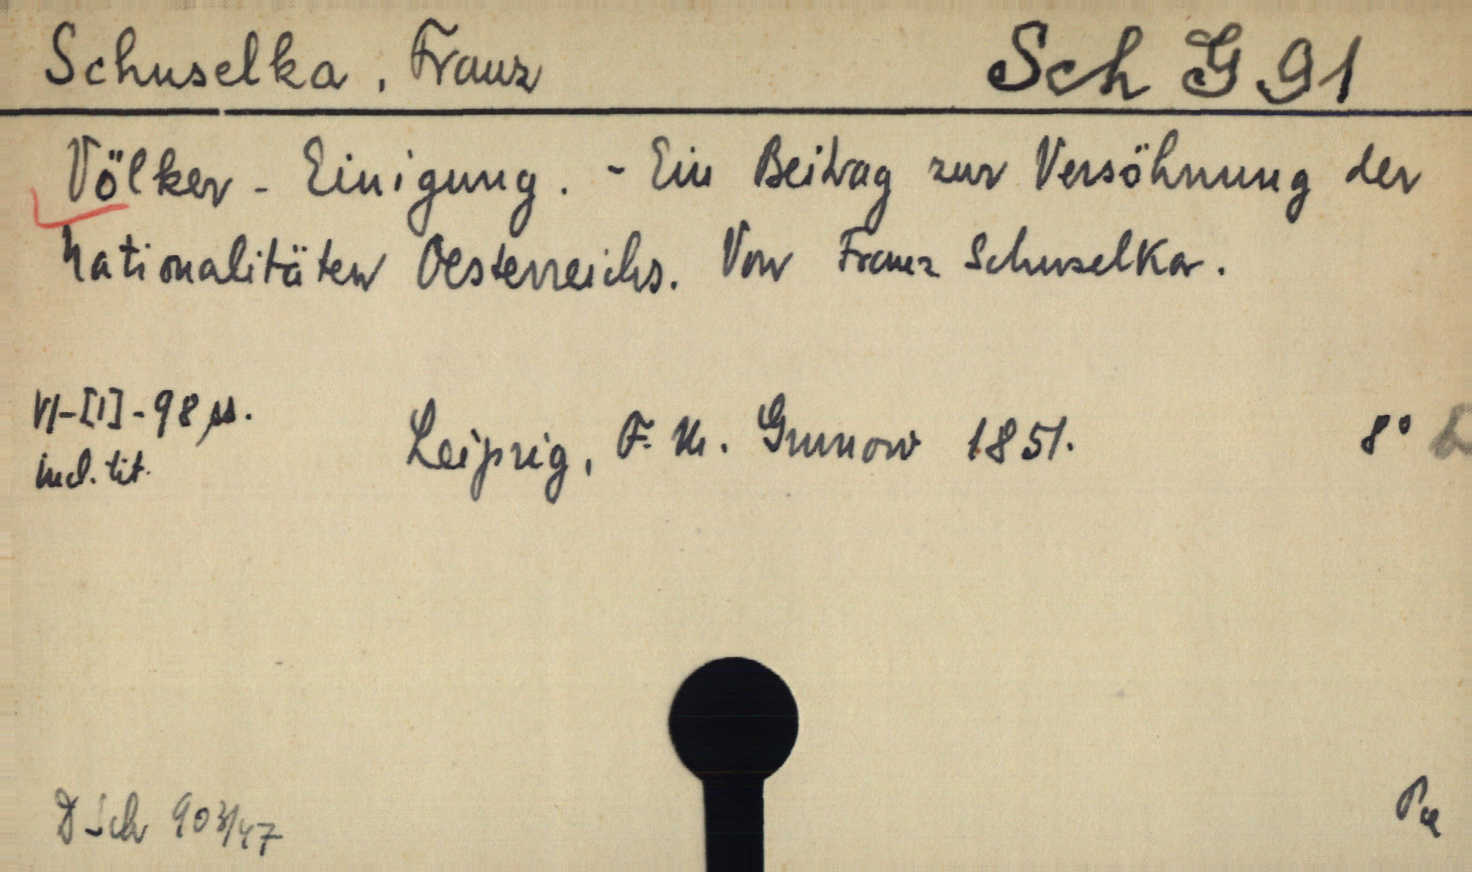 Schuselka, Franz Sch G 91
Völker-Einigung. - Ein Beitrag zur Versöhnung der
Nationalitäten Oesterreichs. Von Franz Schuselka.
VI-[1]-98 pp.
incl. tit.
Leipzig, F. W. Grunow 1851. 8°
D Sch 903/47